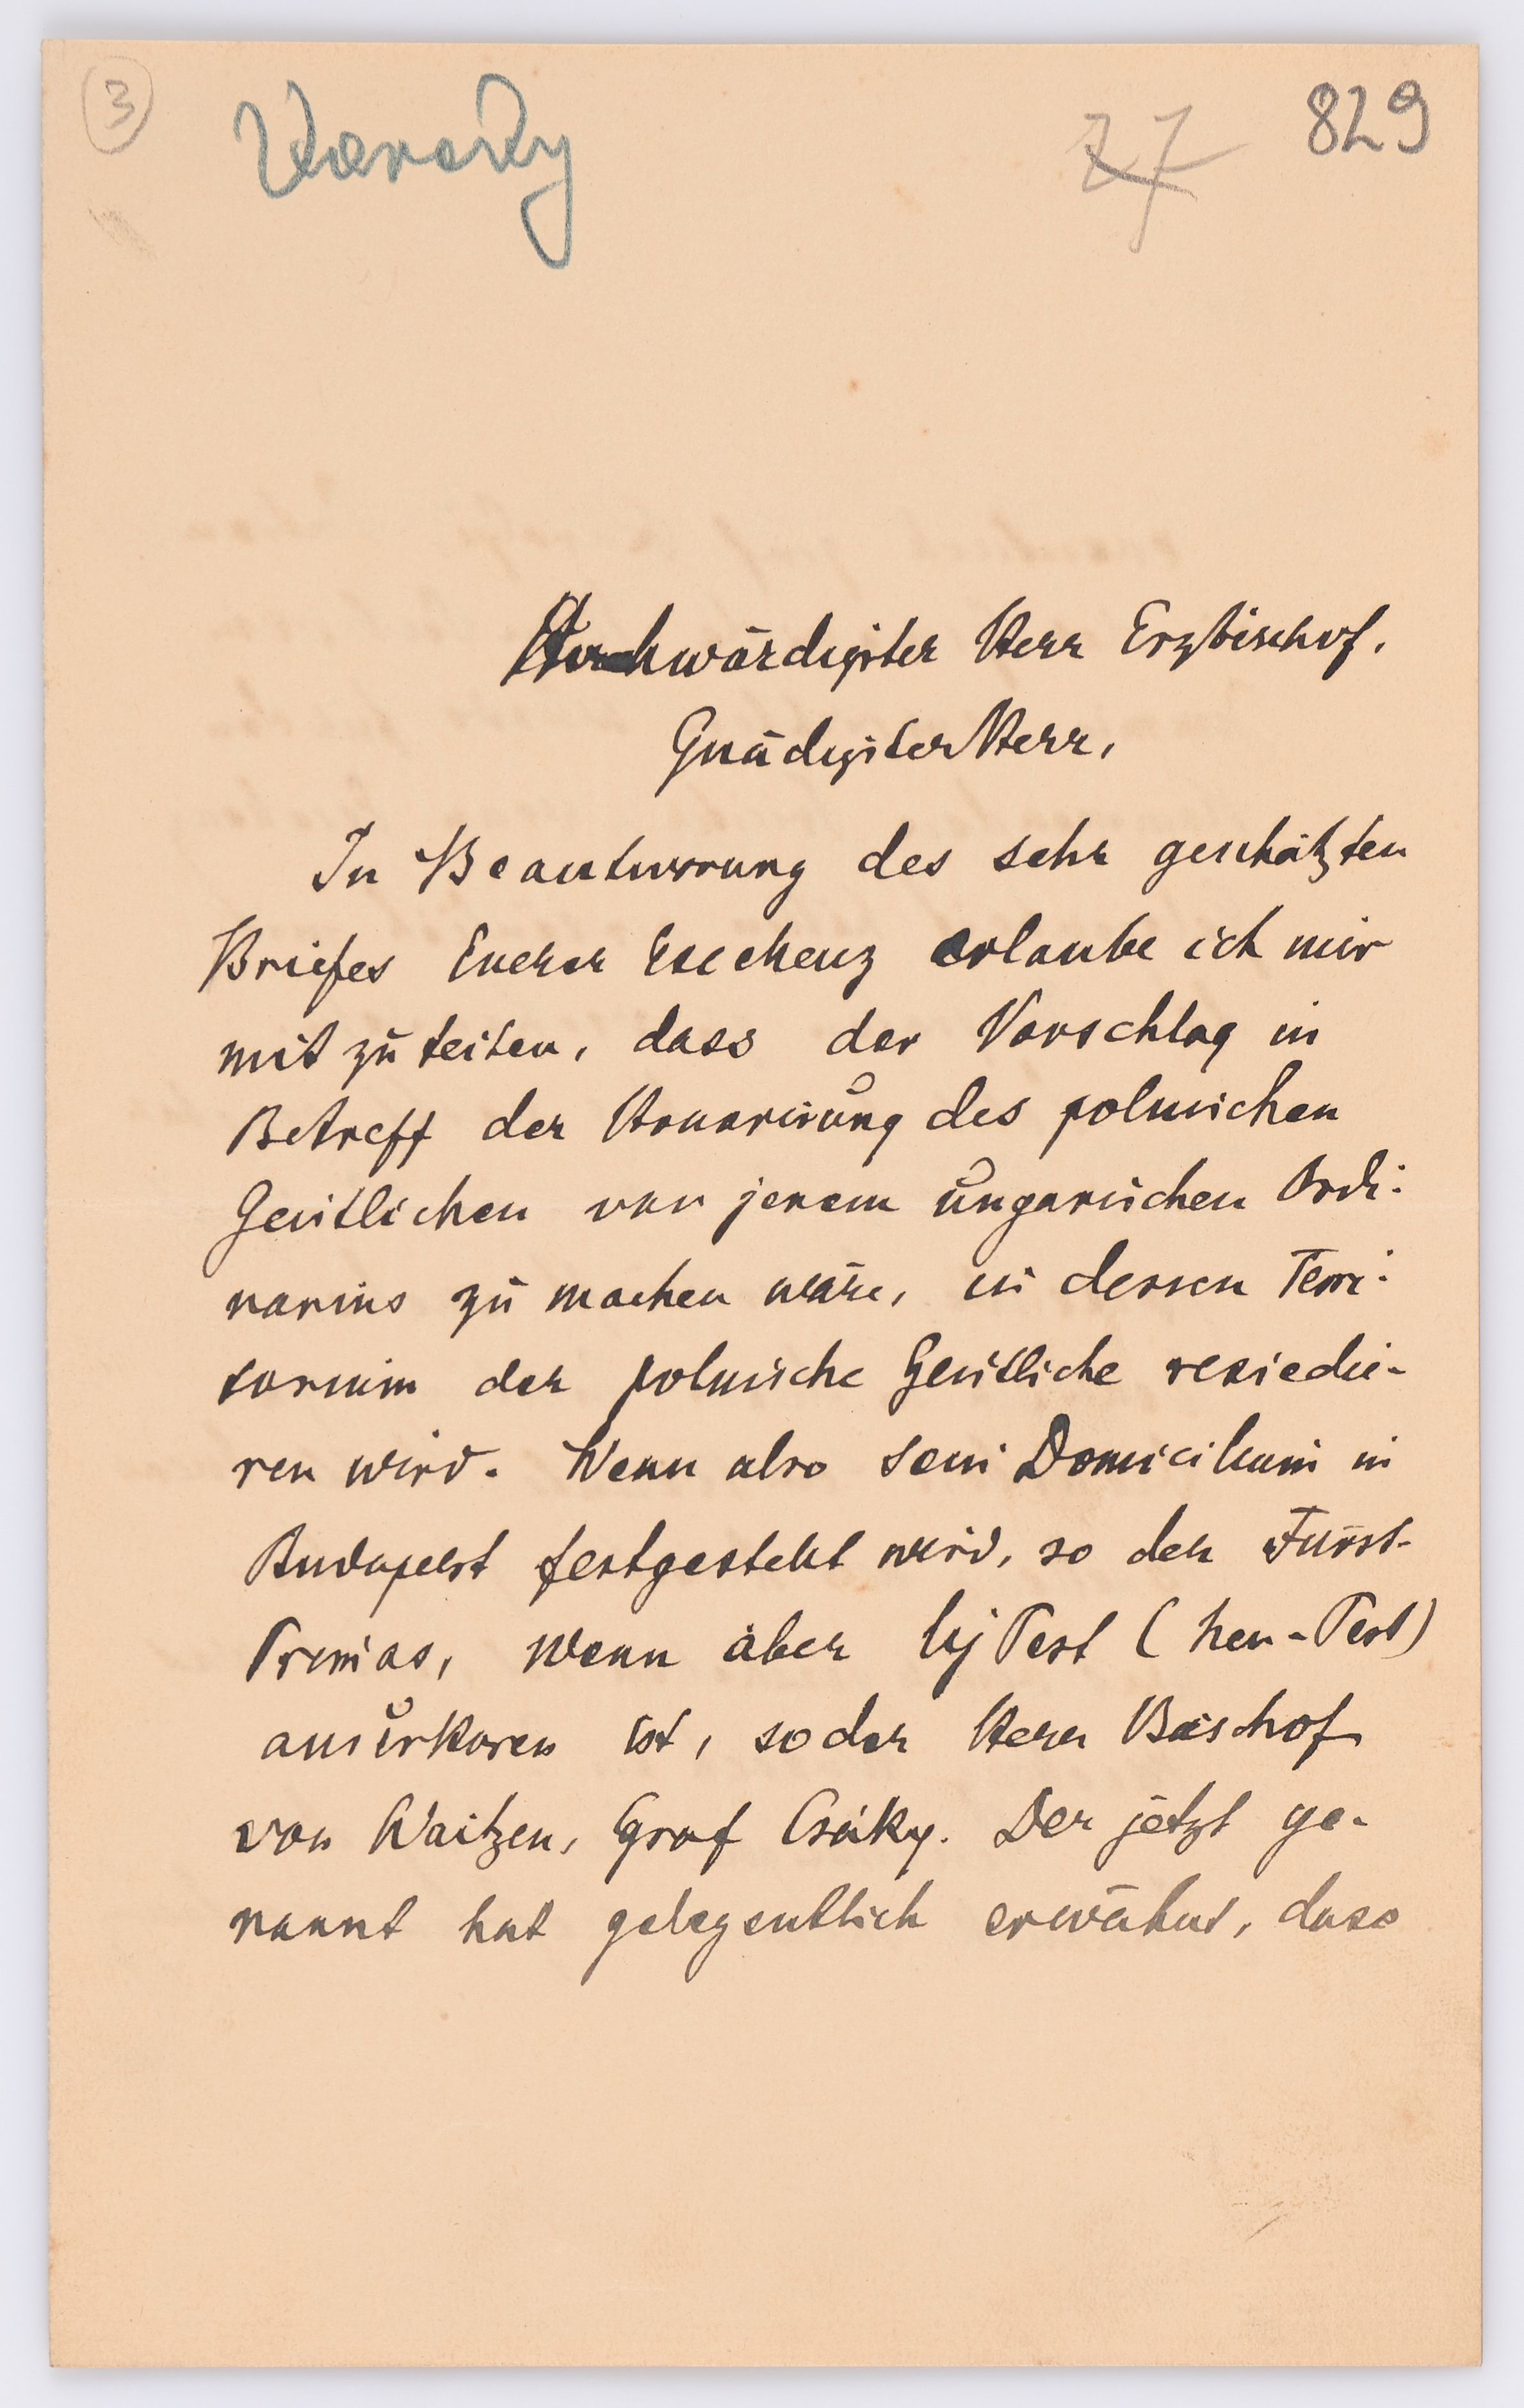 3
Varady
77
829
Hochwürdigster Herr Erzbischof.
Gnädigster Herr,
In Beantworung des sehr geschätzten
Briefes Euerer Excellenz erlaube ich mir
mit zu teilen, dass der Vorschlag in
Betreff der Honorirung des polnischen
Geistlichen von jenem ungarischen Ordi-
narius zu machen wäre, in dessen Terri-
torium der polnische Geistliche resiedie-
ren wird. Wenn also sein Domicilium in
Budapest festgestellt wird, so der Fürst-
Primas, wenn aber Uj Pest (Neu-Pest)
auserkoren ist, so der Herr Bischof
von Waitzen, Graf Csáky. Der jetzt ge-
nannt hat gelegentlich erwähnt, dass